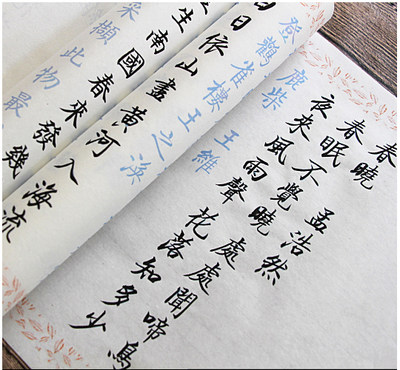 春曉 孟浩然
春眠不覺曉 處處聞啼鳥
夜來風雨聲 花落知多少
鹿柴 王維
登鸛雀樓 王之渙
日依山盡 黃河入海流
生南國 春來發幾
采擷此物最